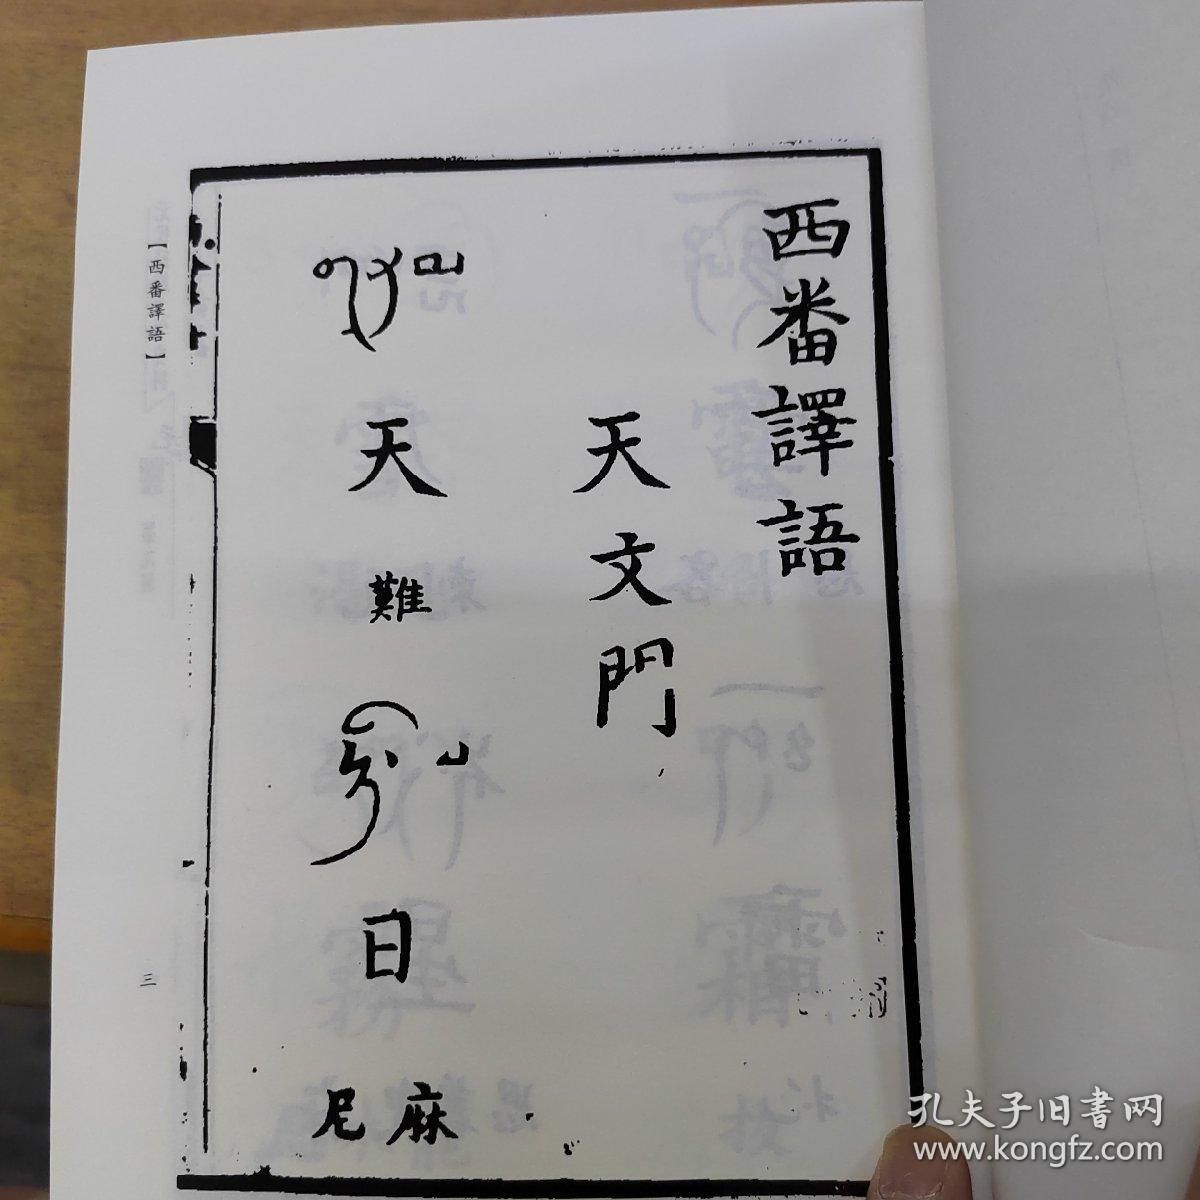 西番譯語
天文門
གནམ
天
難
ཉི་མ
日
尼麻
【西番譯語】
三
孔夫子旧書网
www.kongfz.com